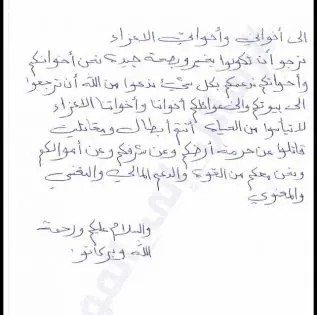 الى أخواني وأخواتي الاعزاء
نرجو أن تكونوا بخير وبصحة جيدة نحن أخوانكم
وأخواتكم ندعمكم بكل شيء ندعوا من الله أن ترجعوا
الى بيوتكم والى عوائلكم أخواننا وأخواتنا الاعزاء
لا تيأسوا من الحياة أنتم أبطال ومقاتلين
قاتلوا عن حرمة أرضكم وعن شرفكم وعن أموالكم
ونحن معكم من القوة والدعم المالي والنفسي
والمعنوي
والسلام عليكم ورحمة
الله وبركاتة